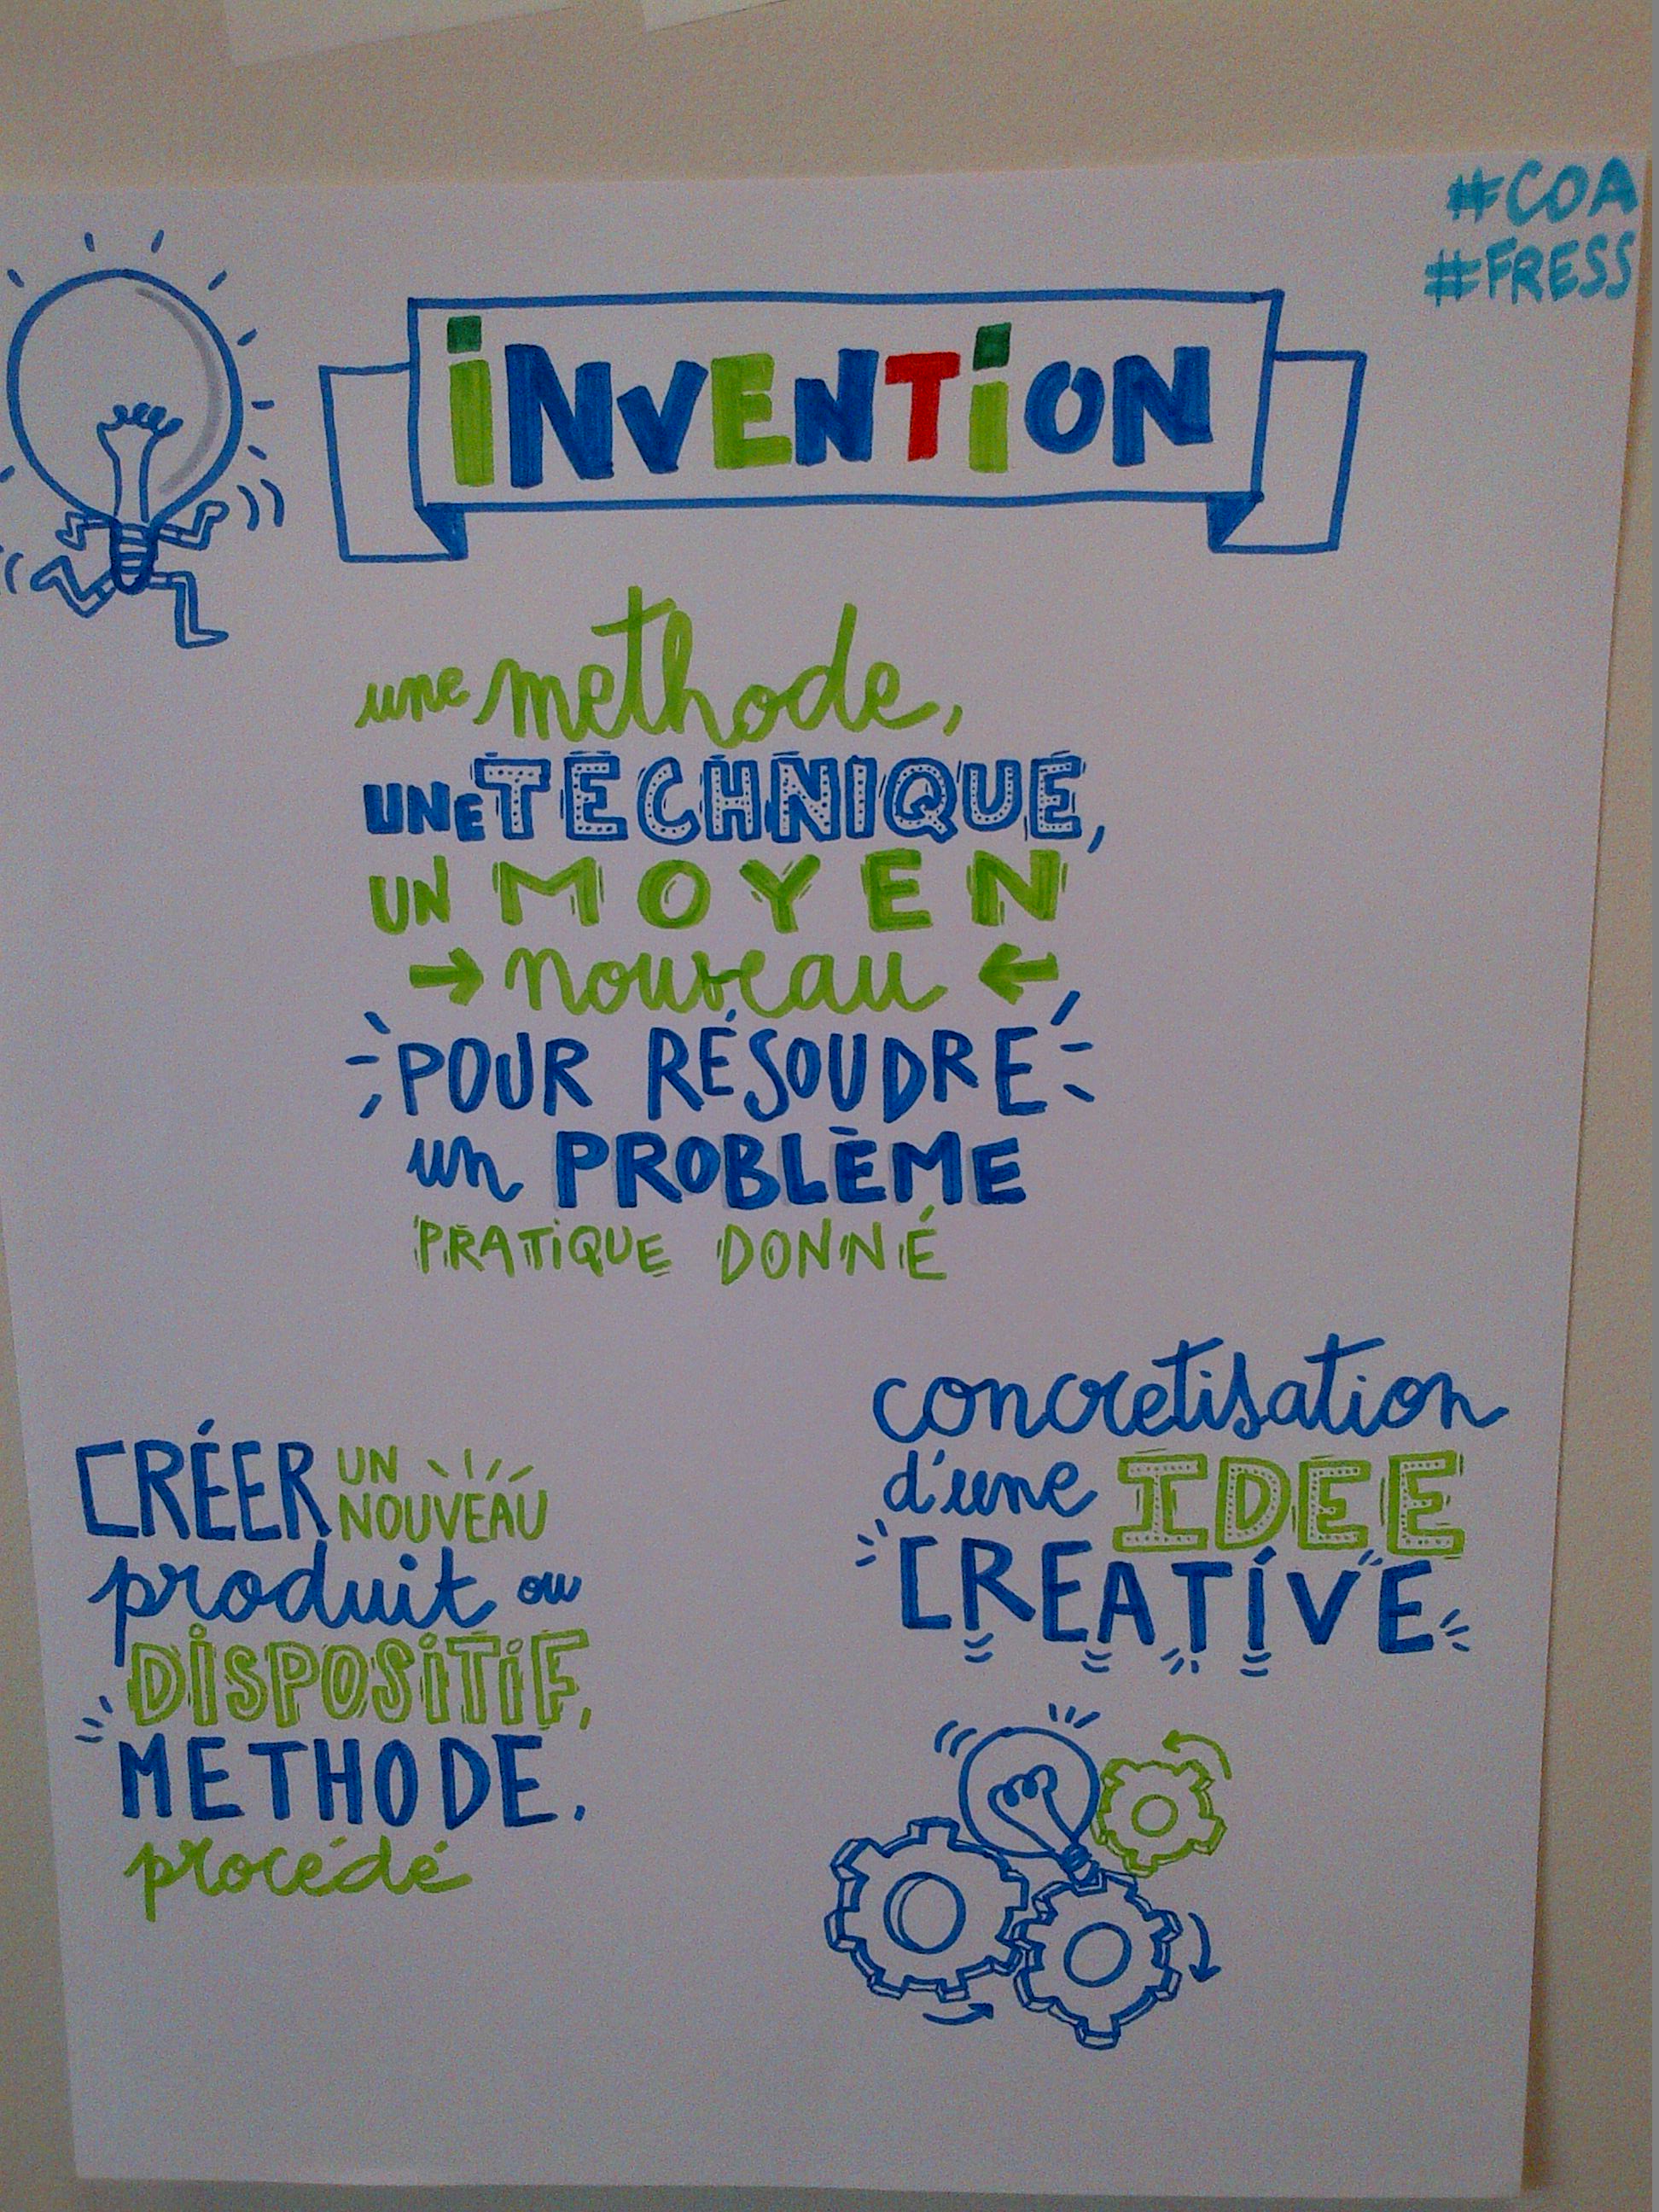 #COA
#FRESS
iNVENTiON
une methode,
UNe TECHNIQUE,
UN MOYEN
→ nouveau ←
POUR RÉSOUDRE
un PROBLÈME
PRATiQUE DONNÉ
CRÉER UN
NOUVEAU
produit ou
DiSPOSiTiF,
METHODE.
procédé
concretisation
d'une IDEE
CREATIVE